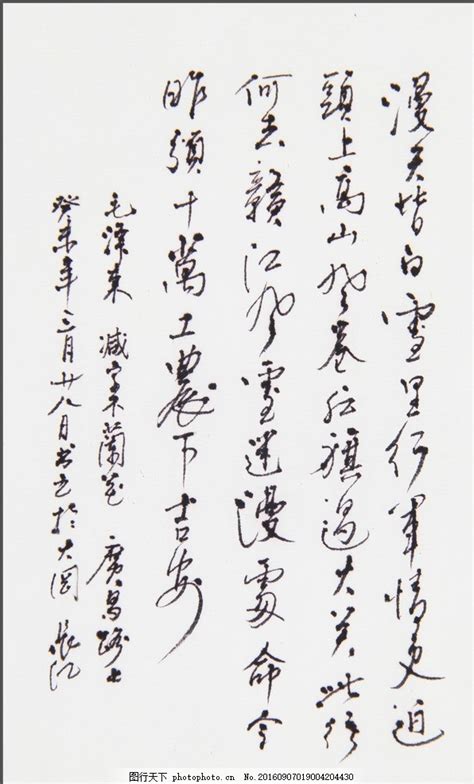 漫天皆白雪里行軍情更迫
頭上高山风卷红旗過大关此行
何去贛江风雪迷漫處命令
昨頒十萬工農下吉安
毛澤东 减字木蘭花 廣昌路上
癸未年三月廿八日书於大岡
图行天下 photophoto.cn No.20160907019004204430